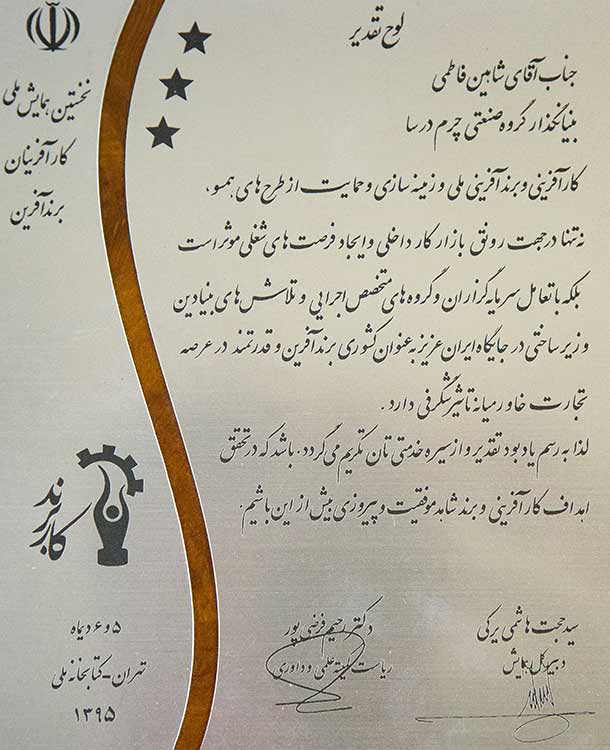 لوح تقدیر
جناب آقای شاهین فاطمی
بنیانگذار گروه صنعتی چرم درسا
کارآفرینی و برندآفرینی ملی و زمینه سازی و حمایت از طرح های همسو،
نه تنها در جهت رونق بازار کار داخلی و ایجاد فرصت های شغلی موثر است
بلکه با تعامل سرمایه گزاران و گروه های متخصص اجرایی و تلاش های بنیادین
و زیرساختی در جایگاه ایران عزیز به عنوان کشوری برندآفرین و قدرتمند در عرصه
تجارت خاورمیانه تاثیر شگرفی دارد.
لذا به رسم یادبود تقدیر و از سیره خدمتی تان تکریم می گردد. باشد که در تحقق
اهداف کارآفرینی و برند شاهد موفقیت و پیروزی بیش از این باشیم.
سید حجت هاشمی یرکی
دبیر کل همایش
دکتر رحیم فرضی پور
ریاست کمیته علمی و داوری
نخستین همایش ملی
کارآفرینان
برندآفرین
کاربرند
۵ و ۶ دیماه
تهران-کتابخانه ملی
۱۳۹۵